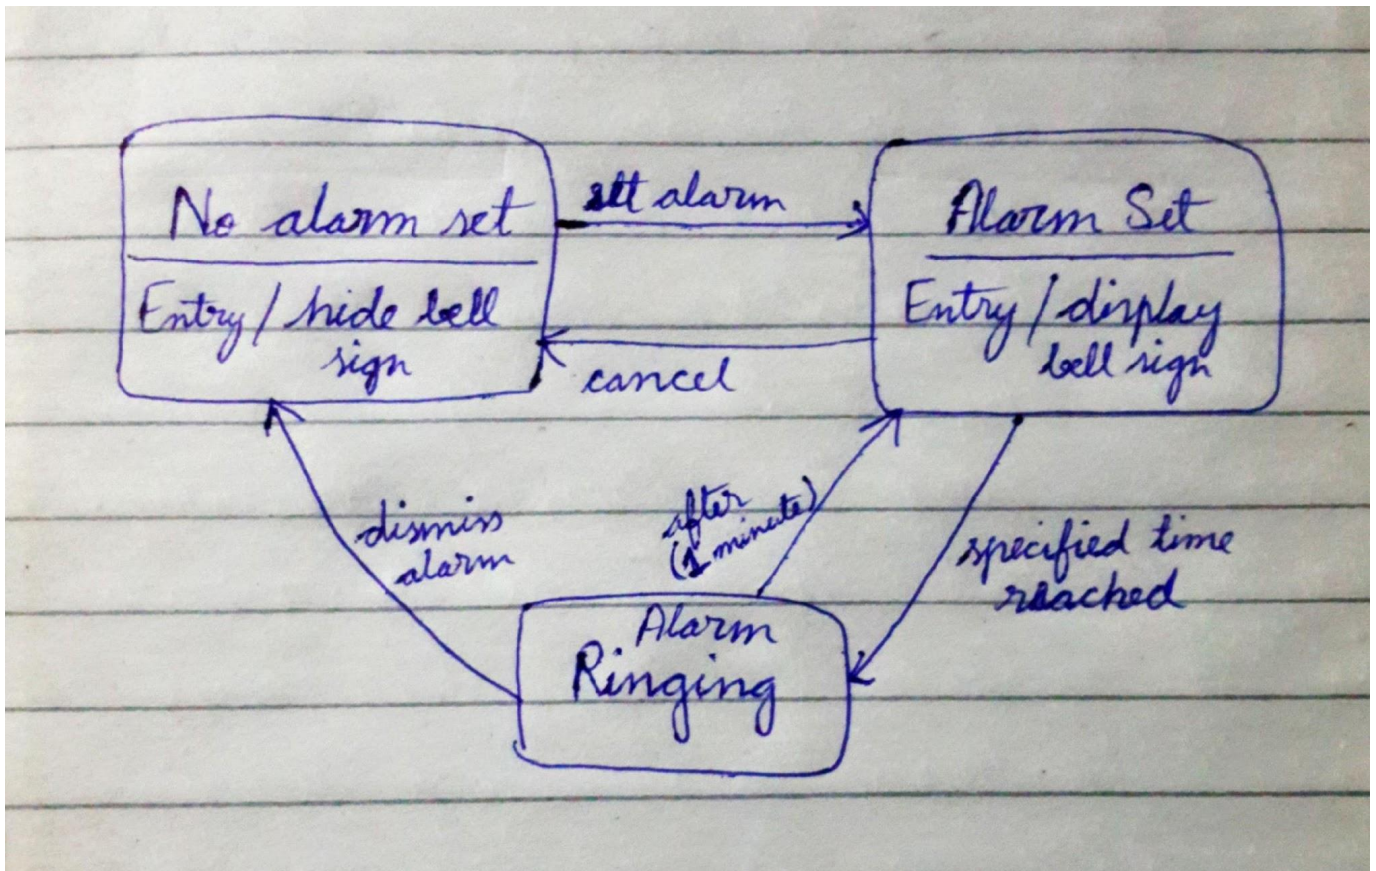 No alarm set
Entry / hide bell
sign
set alarm
cancel
Alarm Set
Entry / display
bell sign
dismiss
alarm
after
(1 minute)
specified time
reached
Alarm
Ringing